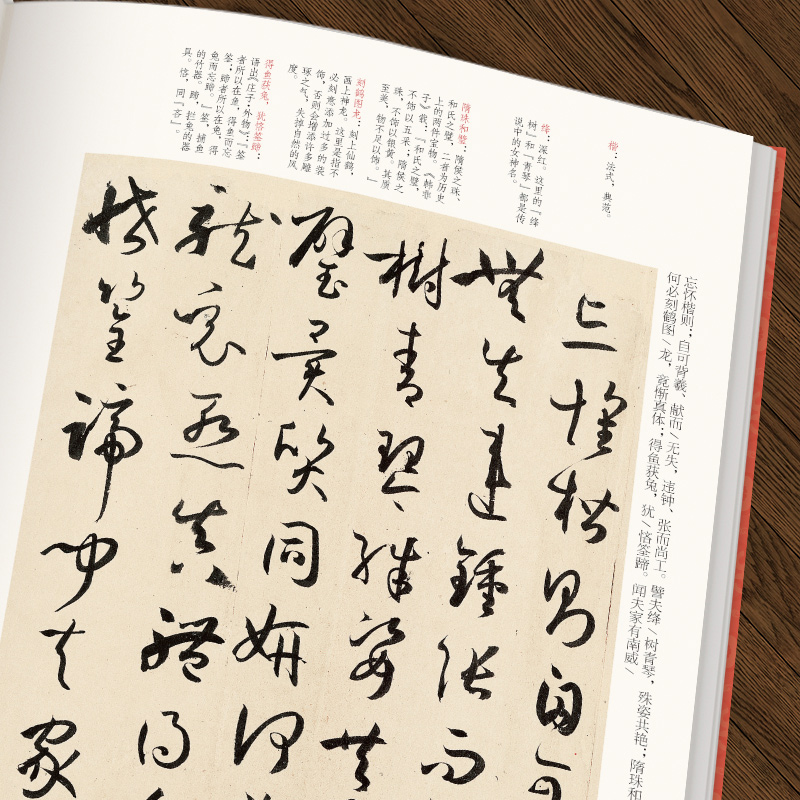 楷：法式，典范。
绛：深红。这里的『绛
树』和『青琴』都是传
说中的女神名。
隋珠和璧：隋侯之珠、
和氏之璧，二者为历史
上的两件宝物。《韩非
子》载：『和氏之璧，
不饰以五采；隋侯之
珠，不饰以银黄。其质
至美，物不足以饰。』
刻鹤图龙：刻上仙鹤，
画上神龙。这里是指不
必刻意添加过多的装
饰，否则会增添许多雕
琢之气，失掉自然的风
度。
得鱼获兔，犹恪筌蹄：
语出《庄子·外物》：『筌
者所以在鱼，得鱼而忘
筌；蹄者所以在兔，得
兔而忘蹄。』筌，捕鱼
的竹器。蹄，拦兔的器
具。恪，同『吝』。
忘怀楷则；自可背羲、献而\无失，违钟、张而尚工。譬夫绛\树青琴，殊姿共艳；隋珠和
何必刻鹤图\龙，竟惭真体；得鱼获兔，犹\恪筌蹄。闻夫家有南威\
忘懷楷則自
無失違鍾張而
樹青琴殊姿共
璧異質同妍何
龍竟慙真體得
恡筌蹄聞夫家